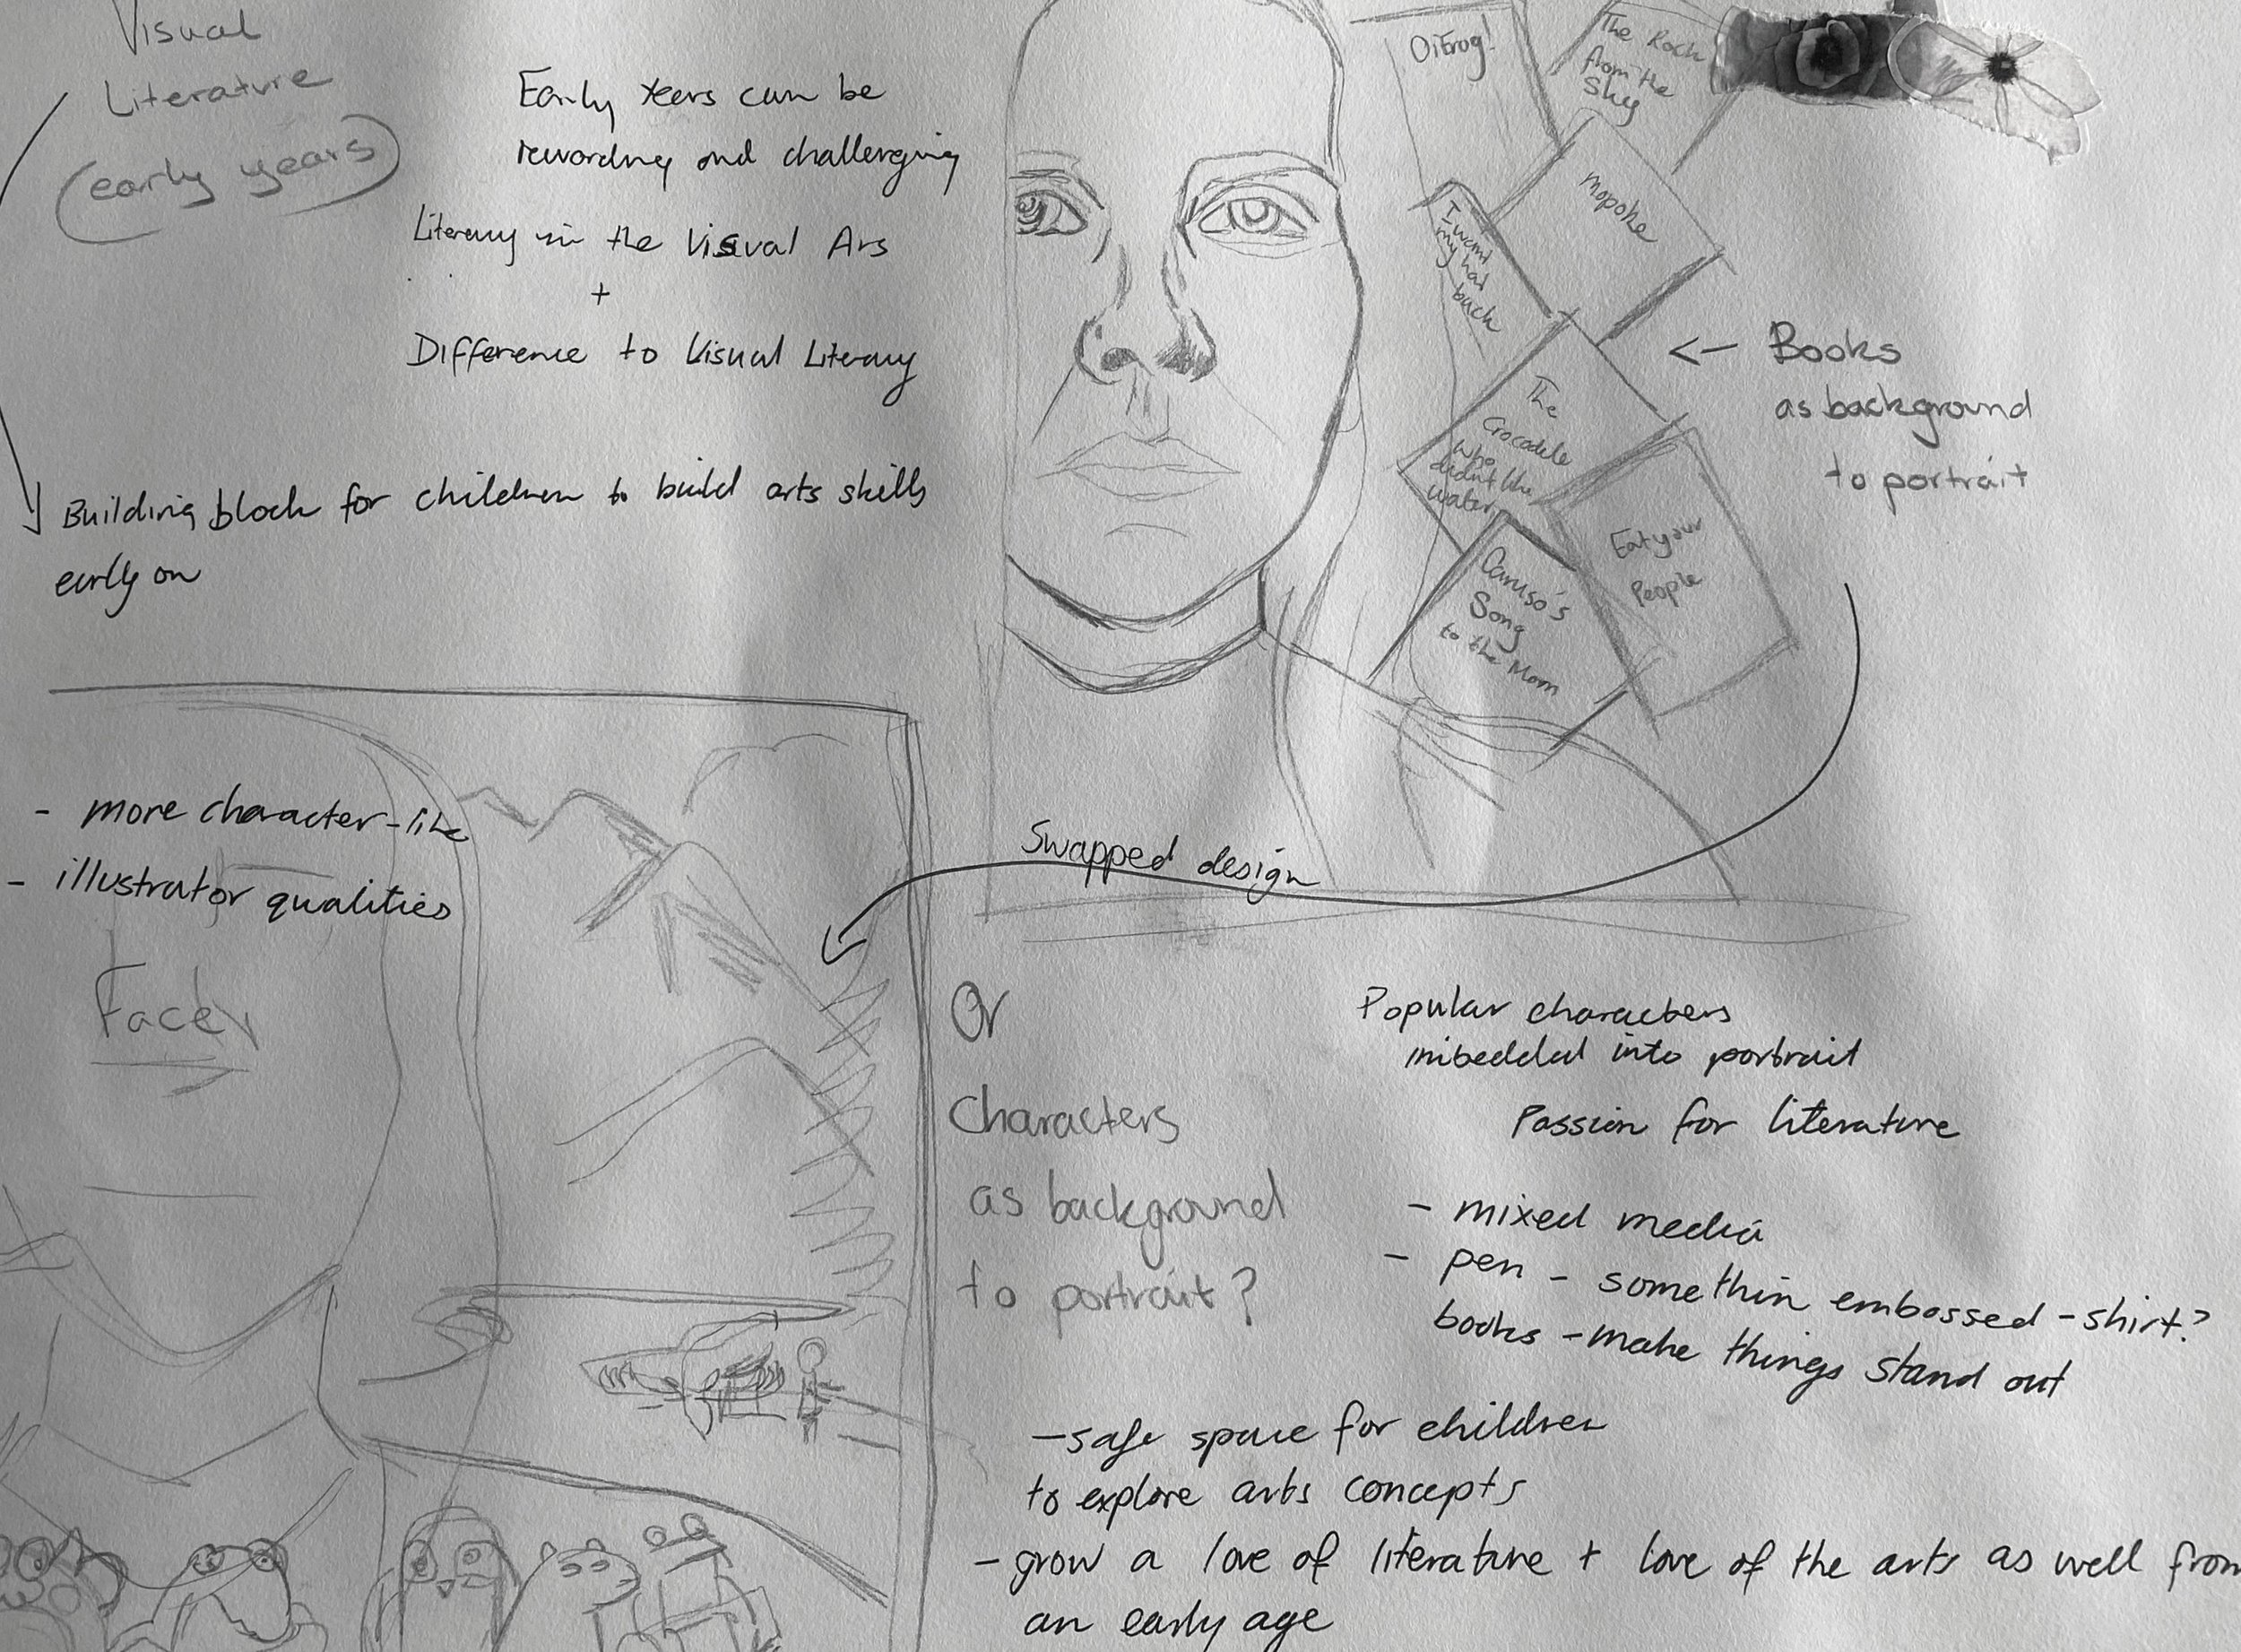 Visual
Literature
(early years)
Early Years can be
rewarding and challenging
Literacy in the Visual Ars
+
Difference to Visual Literacy
Building block for children to build arts skills
early on
Oi Frog!
The Rock
from the
Sky
mopoke
I want
my hat
back
The
Crocodile
Who
didn't like
water
Eat your
People
Caruso's
Song
to the Moon
← Books
as background
to portrait
Swapped design
- more character-like
- illustrator qualities
Face
Or
Characters
as background
to portrait?
Popular characters
imbedded into portrait
Passion for literature
- mixed media
- pen - somethin embossed - shirt?
books - make things stand out
- safe space for children
to explore arts concepts
- grow a love of literature + love of the arts as well from
an early age